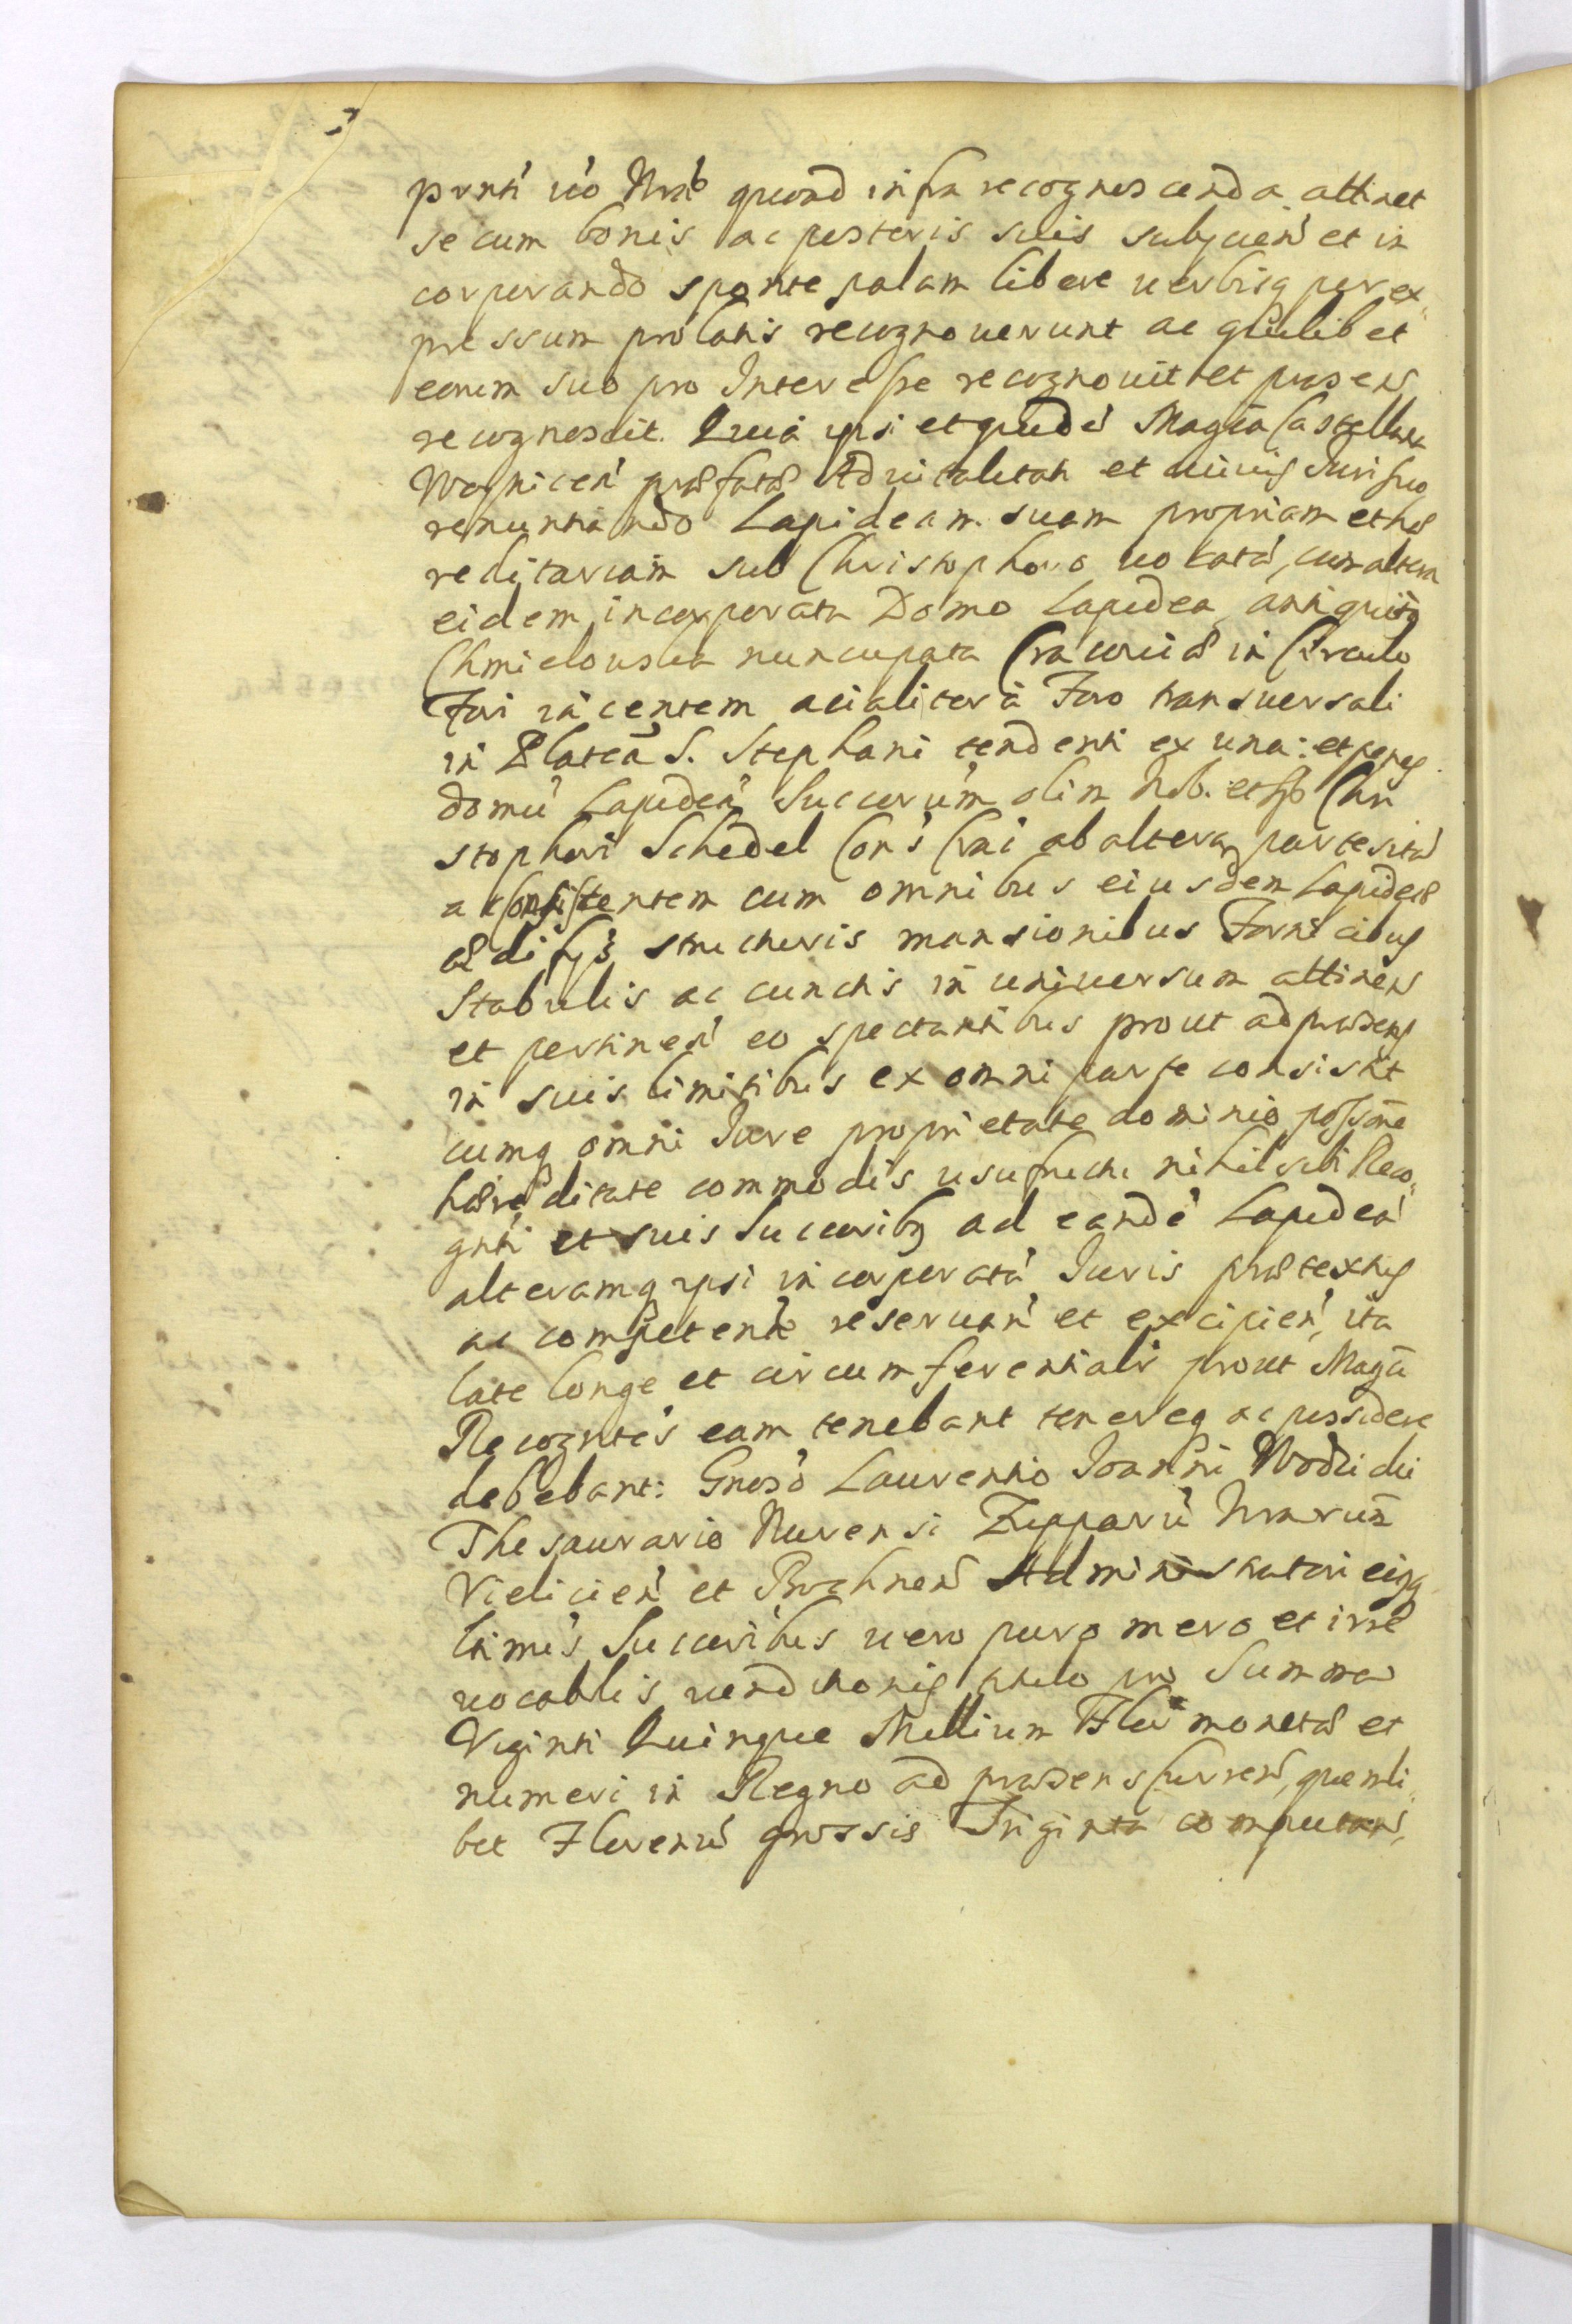 prnti vo Nrab quoad infra recognoscenda attinet
se cum bonis ac posteris suis subjicien et in
corporando sponte palam libere verbisq per ex„
pressum prolatis recognoverunt ac quilibet
eorum suo pro Interesse recognovit et praesen
recognoscit. Quia ipsi et quidē Magca Castellana
Woynicen praefatae Advitalitati et Juri suo
renuntiando Lapideam suam propriam et hae
reditariam sub Christophoro vocatā, cum altera
eidem incorporata Domo Lapidea antiquitq
Chmielouska nuncupata Cracoviae in Circulo
Fori iacentem acialiter à Foro transversali
in Plateā S. Stephani tendenti ex una: et penes
domū Lapideā Succorum olim Nob. et Chri
stophori Schedel Cons Crac ab altera partesita
ac consistentem cum omnibus eiusdem Lapideae
aedifys structuris mansionibus Fornicibus
Stabulis ac cunctis in universum attinen
et pertinen eo spectantibus prout ad praesens
in suis limitibus ex omni parte consistit
cumq omni Jure proprietate dominio possone
haereditate commodis usufructu nihil sibi Reco„
gnti et suis Succoribq ad eandē Lapideā
alteramq ipsi incorporatā Juris praetextus
ac competentē reservan et excipien, ita
late longe et circumferentialr prout Magci
Recogntes eam tenebant tenereq ac possidere
debebant: Gnoso Laurentio Joanni Wodzicki
Thesaurario Nurensi Zupparū Nrarum
Vielicien et Bochnen Administratori eiusq
ltimis Succoribus vero puro mero et irre
vocablis venditionis titulo pro Summa
Viginti Quinque Millium Flor monetae et
numeri in Regno ad praesens curren, quemli„
bet Florenū grossis Triginta computan,